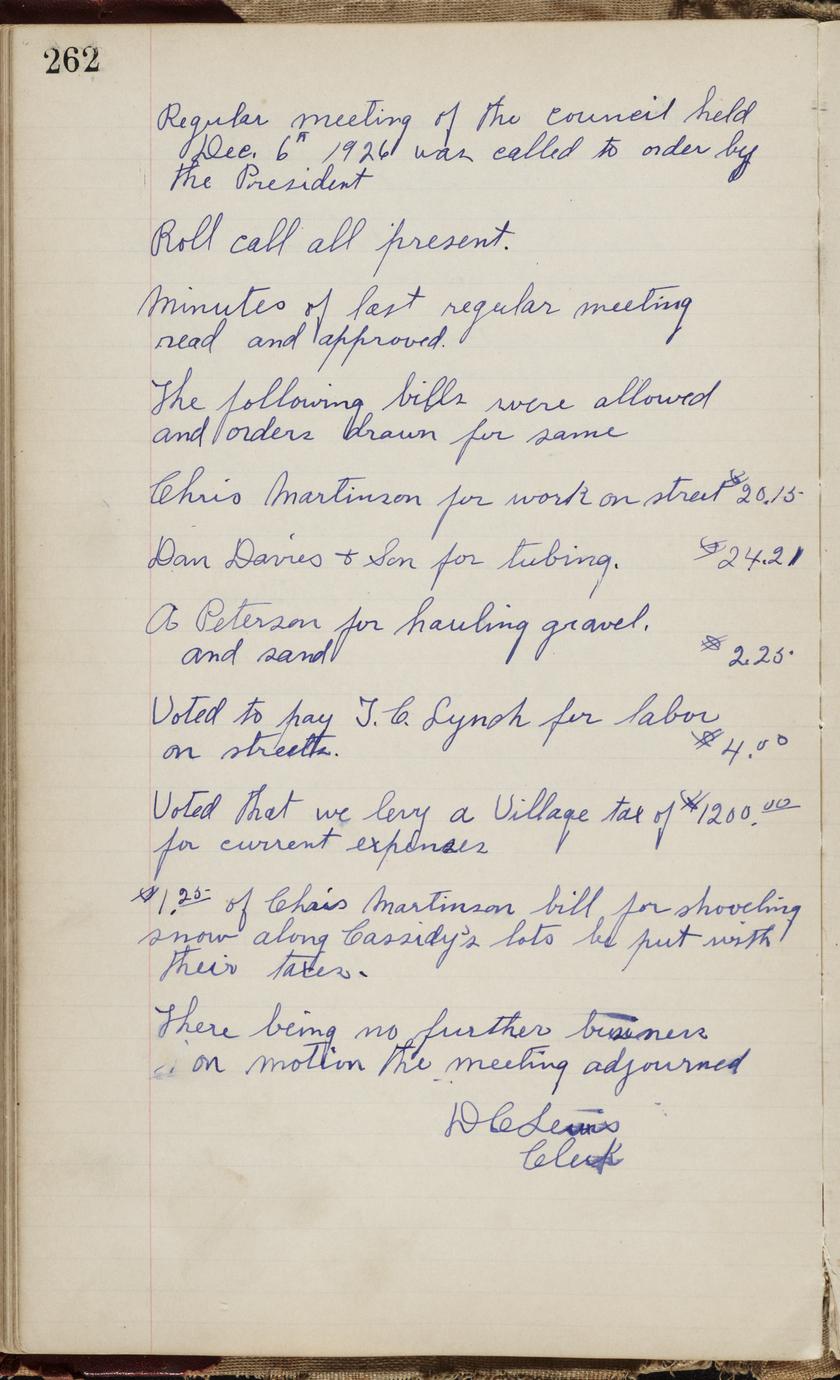 262
Regular meeting of the council held
Dec. 6th 1926 was called to order by
the President
Roll call all present.
Minutes of last regular meeting
read and approved.
The following bills were allowed
and orders drawn for same
Chris Martinson for work on street $20.15
Dan Davies & Son for tubing. $24.21
A Peterson for hauling gravel.
and sand $2.25
Voted to pay T.C. Lynch for labor
on streets. $4.00
Voted that we levy a Village tax of $1200.00
for current expenses
$1.25 of Chris Martinson bill for shoveling
snow along Cassidy's lots be put with
their taxes.
There being no further business
on motion the meeting adjourned
D C Lewis
Clerk